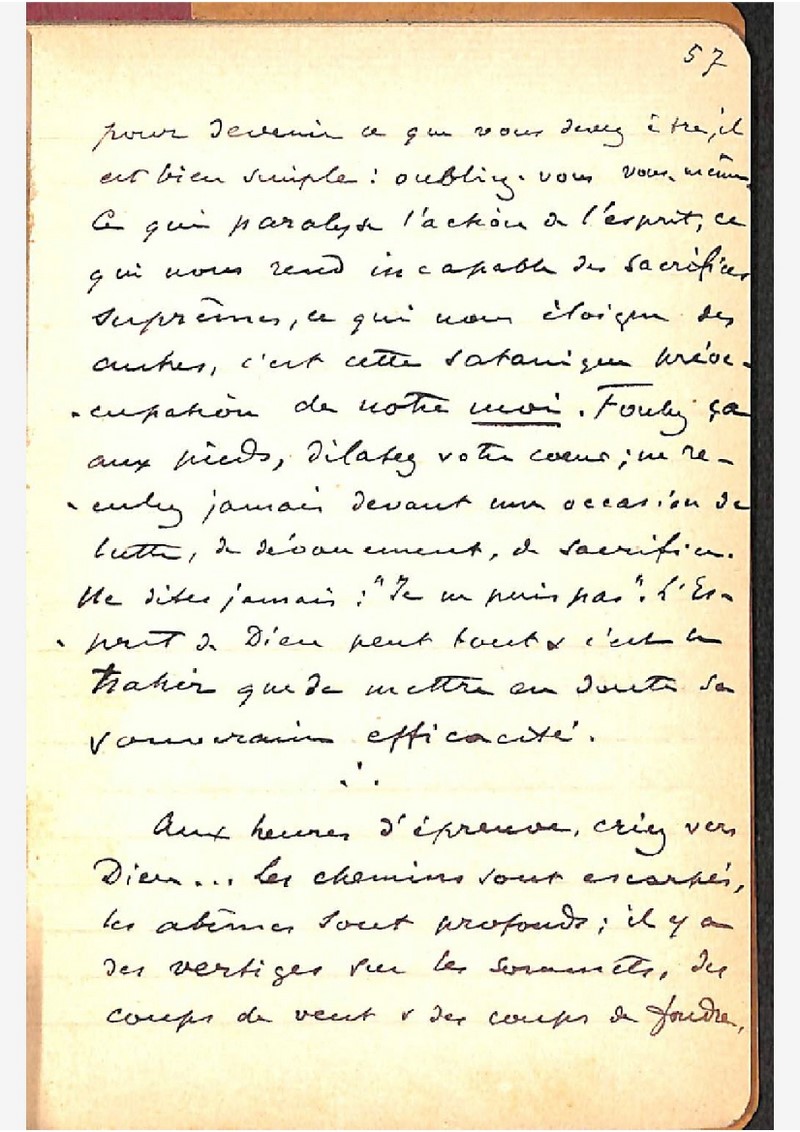 57
pour devenir ce que vous devez être, il
est bien simple : oubliez-vous vous-même.
Ce qui paralyse l'action de l'esprit, ce
qui nous rend incapable des sacrifices
suprêmes, ce qui nous éloigne des
autres, c'est cette satanique préoc-
-cupation de notre moi. Foulez ça
aux pieds, dilatez votre cœur ; ne re-
-culez jamais devant une occasion de
lutte, de dévouement, de sacrifice.
Ne dites jamais : "Je ne puis pas". L'Es-
-prit de Dieu peut tout & c'est le
trahir que de mettre en doute sa
souveraine efficacité.
∴
Aux heures d'épreuve, criez vers
Dieu... Les chemins sont escarpés,
les abîmes sont profonds ; il y a
des vertiges sur les sommets, des
coups de vent & des coups de foudre,